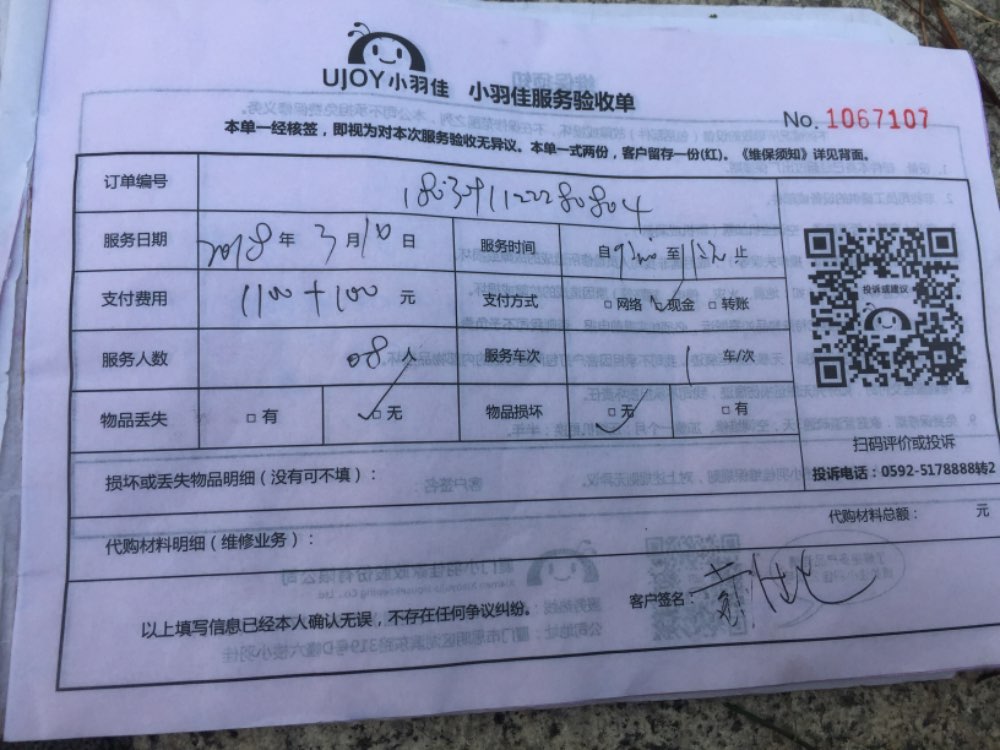 UJOY小羽佳 小羽佳服务验收单
No. 1067107
本单一经核签，即视为对本次服务验收无异议。本单一式两份，客户留存一份(红)。《维保须知》详见背面。
订单编号
服务日期 2018年 3月10日 服务时间 自 至 止
支付费用 1100+100 元 支付方式 □网络 □现金 □转账
服务人数 08人 服务车次 1 车/次
物品丢失 □有 □无 物品损坏 □无 □有
投诉或建议
扫码评价或投诉
投诉电话：0592-5178888转2
损坏或丢失物品明细（没有可不填）：
代购材料总额： 元
代购材料明细（维修业务）：
客户签名：
以上填写信息已经本人确认无误，不存在任何争议纠纷。